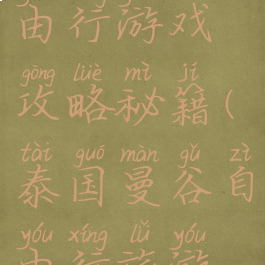 由行游戏
gōng lüè mì jí
攻略秘籍(
tài guó màn gǔ zì
泰国曼谷自
yóu xíng lǚ yóu
由行旅游